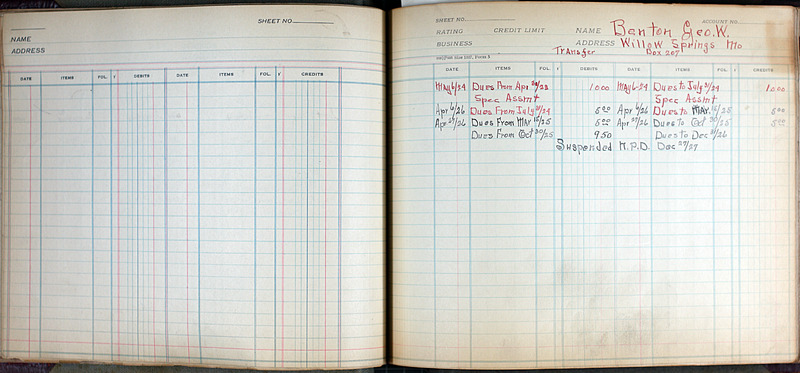 SHEET NO.
NAME
ADDRESS
DATE ITEMS FOL. √ DEBITS DATE ITEMS FOL. √ CREDITS
SHEET NO. ACCOUNT NO.
RATING CREDIT LIMIT NAME Banton Geo. W.
BUSINESS ADDRESS Willow Springs Mo
Transfer Box 207
DATE ITEMS FOL. √ DEBITS DATE ITEMS FOL. √ CREDITS
MAY 6/24 Dues From Apr 30/23 10 00 MAY 6-24 Dues to July 31/24 10 00
Spec Assmt Spec Assmt
Apr 6/26 Dues From July 31/24 5 00 Apr 6/26 Dues to MAY 15/25 5 00
Apr 27/26 Dues From MAY 15/25 5 00 Apr 27/26 Dues to Oct 30/25 5 00
Dues From Oct 30/25 9 50 Dues to Dec 31/26
Suspended N.P.D. Dec 27/27